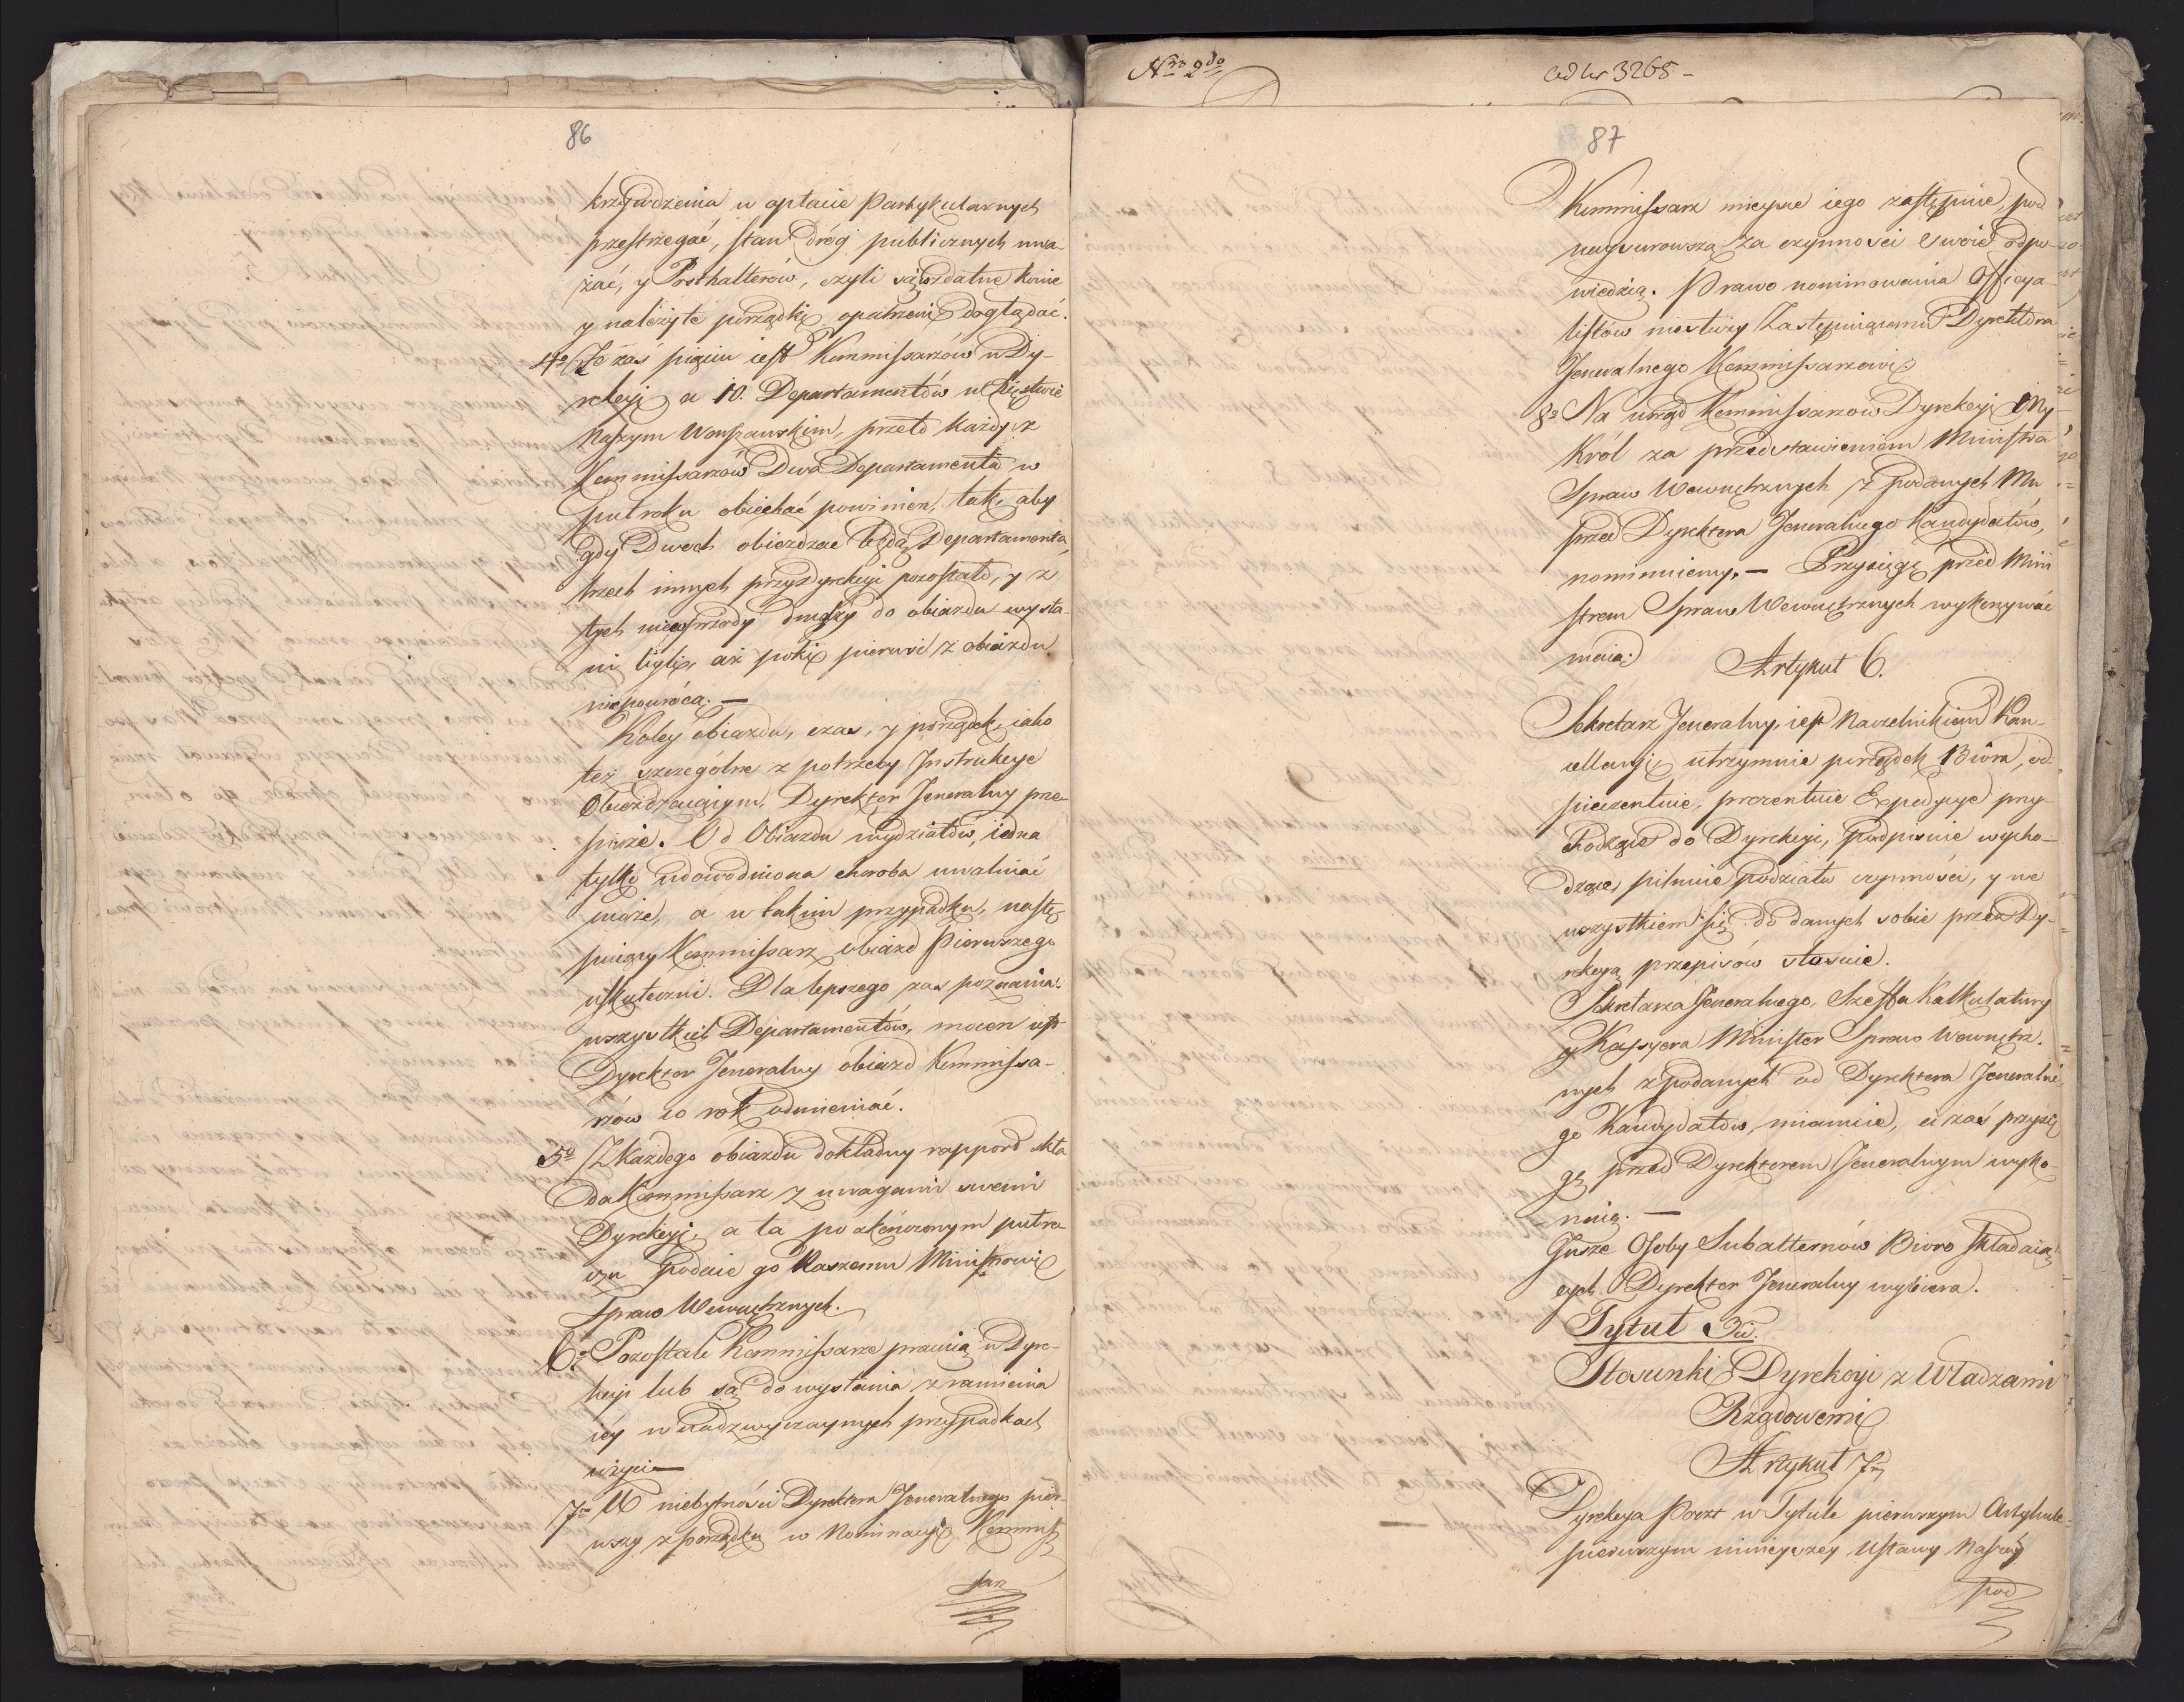 86
krzywdzenia w opłacie Partykularnych
przestrzegać, stan dróg publicznych uwa
żać, y Posthalterów, czyli są w zdatne konie
y należyte porządki opatrzeni doglądać.
4o Że zaś pięciu iest Kommissarzów w Dy-
rekcyi a 10. Departamentów w Xięstwie
Naszym Warszawskim, przeto każdy z
Kommissarzów Dwa Departamenta w
put roku obiechać powinien, tak, aby
gdy Dwoch obiezdzać będą Departamenta,
trzech innych przy Dyrekcyi pozostało, y z
tych nieprzody drudzy do obiazdu wysła-
ni byli, aż poki pierwsi z obiazdu
niepowrócą. —
Koley obiazdu, czas, y porządek iako
też szczególne z potrzeby Instrukcye
Obieżdzaiącym, Dyrektor Jeneralny prze-
pisze. Od Obiazdu wydziałów, iedna
tylko udowodniona choroba uwalniać
może, a w takim przypadku, nastę-
puiący Kommissarz obiazd Pierwszego
uskuteczni. Dla lepszego zaś poznania
wszystkich Departamentów, mocen iest
Dyrektor Jeneralny obiazd Kommissa-
rzów co rok odmieniać.
5o Z każdego obiazdu dokładny rapport skła
da Kommissarz z uwagami swemi
Dyrekcyi, a ta po skończonym putro-
czu podaie go Naszemu Ministrowi
Spraw Wewnętrznych.
6o Pozostali Kommissarze pracuią w Dyre-
kcyi lub są do wysłania z ramienia
iéy w nadzwyczaynych przypadkach
użyci —
7mo W niebytności Dyrektora Jeneralnego pier-
wszy z porządku w Nominacyi Kommis
sarz
Nro 2do
ad Nr 3268 -
87
Kommissarz mieysce iego zastępuie, pod
naysurowszą za czynności swoie odpo-
wiedzią. Prawo nominowania Officya-
listów niesłuży Zastępuiącemu Dyrektora
Jeneralnego Kommissarzowi.
8o Na urząd Kommissarzow Dyrekcyi My
Król za przedstawieniem Ministra
Spraw Wewnętrznych z podanych Mu
przed Dyrektora Jeneralnego Kandydatów,
nominuiemy. — Przysięgę przed Mini
strem Spraw Wewnętrznych wykonywać
maią.
Artykuł 6.
Sekretarz Jeneralny, iest Naczelnikiem Kan-
cellaryi utrzymuie porządek Biora, od-
pieczentuie, prezentuie Expedycye przy-
chodzące do Dyrekcyi, podpisuie wycho-
dzące, pilnuie podziału czynności, y we
wszystkiem się do danych sobie przez Dy-
rekcyą przepisów stosuie.
Sekretarza Jeneralnego, Szeffa Kalkulatury
y Kassyera Minister Spraw Wewnętrz-
nych z podanych od Dyrektora Jeneralne-
go Kandydatów, mianuie, ci zaś przysię
gę przed Dyrektorem Jeneralnym wyko-
naią. —
Insze Osoby Subalternów Bioro składaią
cych Dyrektor Jeneralny wybiera.
Tytuł 3ci.
Stosunki Dyrekcyi z Władzami
Rządowemi
Artykuł 7my
Dyrekcya Poczt w Tytule pierwszym Artykule-
pierwszym ninieyszey Ustawy Naszéy
pod